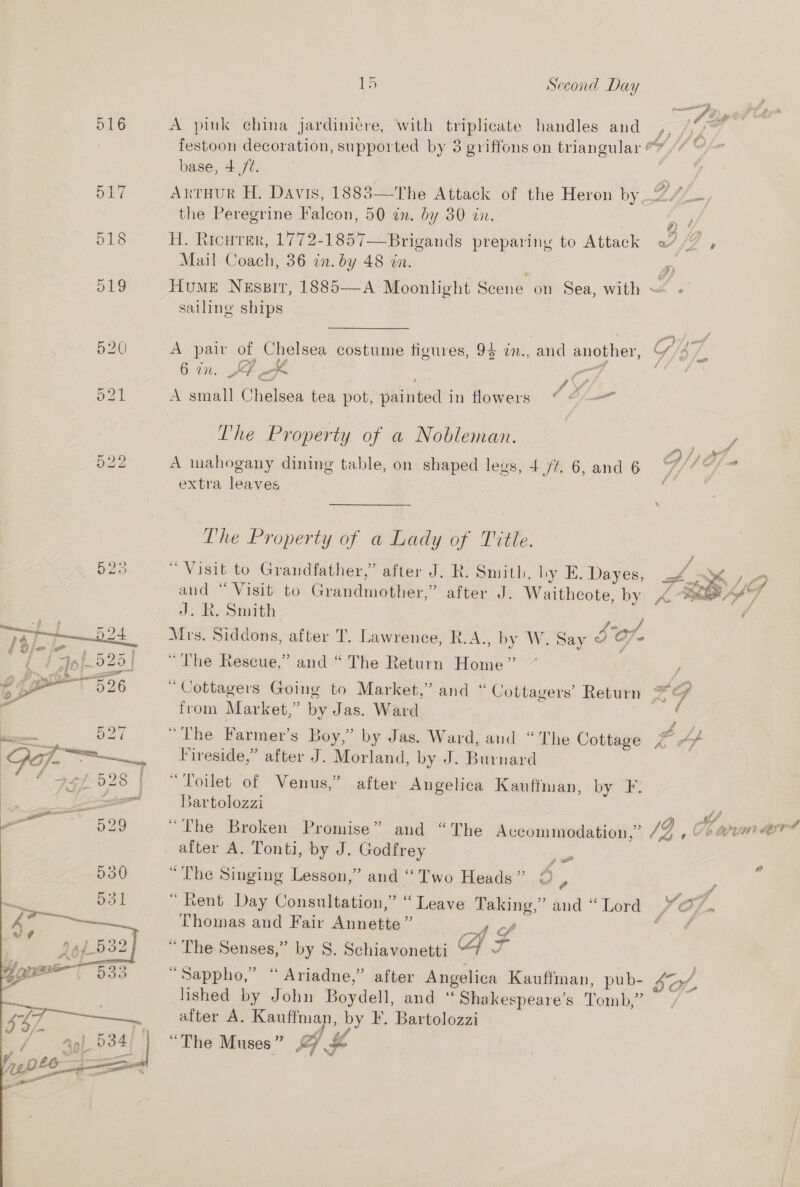 15 Second Day
516 A pink china jardinière, with triplicate handles and
festoon decoration, supported by 3 griffons on triangular
base, 4 ft.
517 ARTHUR H. DAVIS, 1883—The Attack of the Heron by
the Peregrine Falcon, 50 in. by 30 in.
518 H. RICHTER, 1772-1857—Brigands preparing to Attack
Mail Coach, 36 in. by 48 in.
519 HUME NESBIT, 1885—A Moonlight Scene on Sea, with
sailing ships
520 A pair of Chelsea costume figures, 9½ in., and another,
6 in.
521 A small Chelsea tea pot, painted in flowers
The Property of a Nobleman.
522 A mahogany dining table, on shaped legs, 4 ft. 6, and 6
extra leaves
The Property of a Lady of Title.
523 “Visit to Grandfather,” after J. R. Smith, by E. Dayes,
and “Visit to Grandmother,” after J. Waithcote, by
J. R. Smith
524 Mrs. Siddons, after T. Lawrence, R.A., by W. Say
525 “The Rescue,” and “The Return Home”
526 “Cottagers Going to Market,” and “Cottagers’ Return
from Market,” by Jas. Ward
527 “The Farmer’s Boy,” by Jas. Ward, and “The Cottage
Fireside,” after J. Morland, by J. Burnard
528 “Toilet of Venus,” after Angelica Kauffman, by F.
Bartolozzi
529 “The Broken Promise” and “The Accommodation,”
after A. Tonti, by J. Godfrey
530 “The Singing Lesson,” and “Two Heads”
531 “Rent Day Consultation,” “Leave Taking,” and “Lord
Thomas and Fair Annette”
532 “The Senses,” by S. Schiavonetti
533 “Sappho,” “Ariadne,” after Angelica Kauffman, pub-
lished by John Boydell, and “Shakespeare’s Tomb,”
after A. Kauffman, by F. Bartolozzi
534 “The Muses”